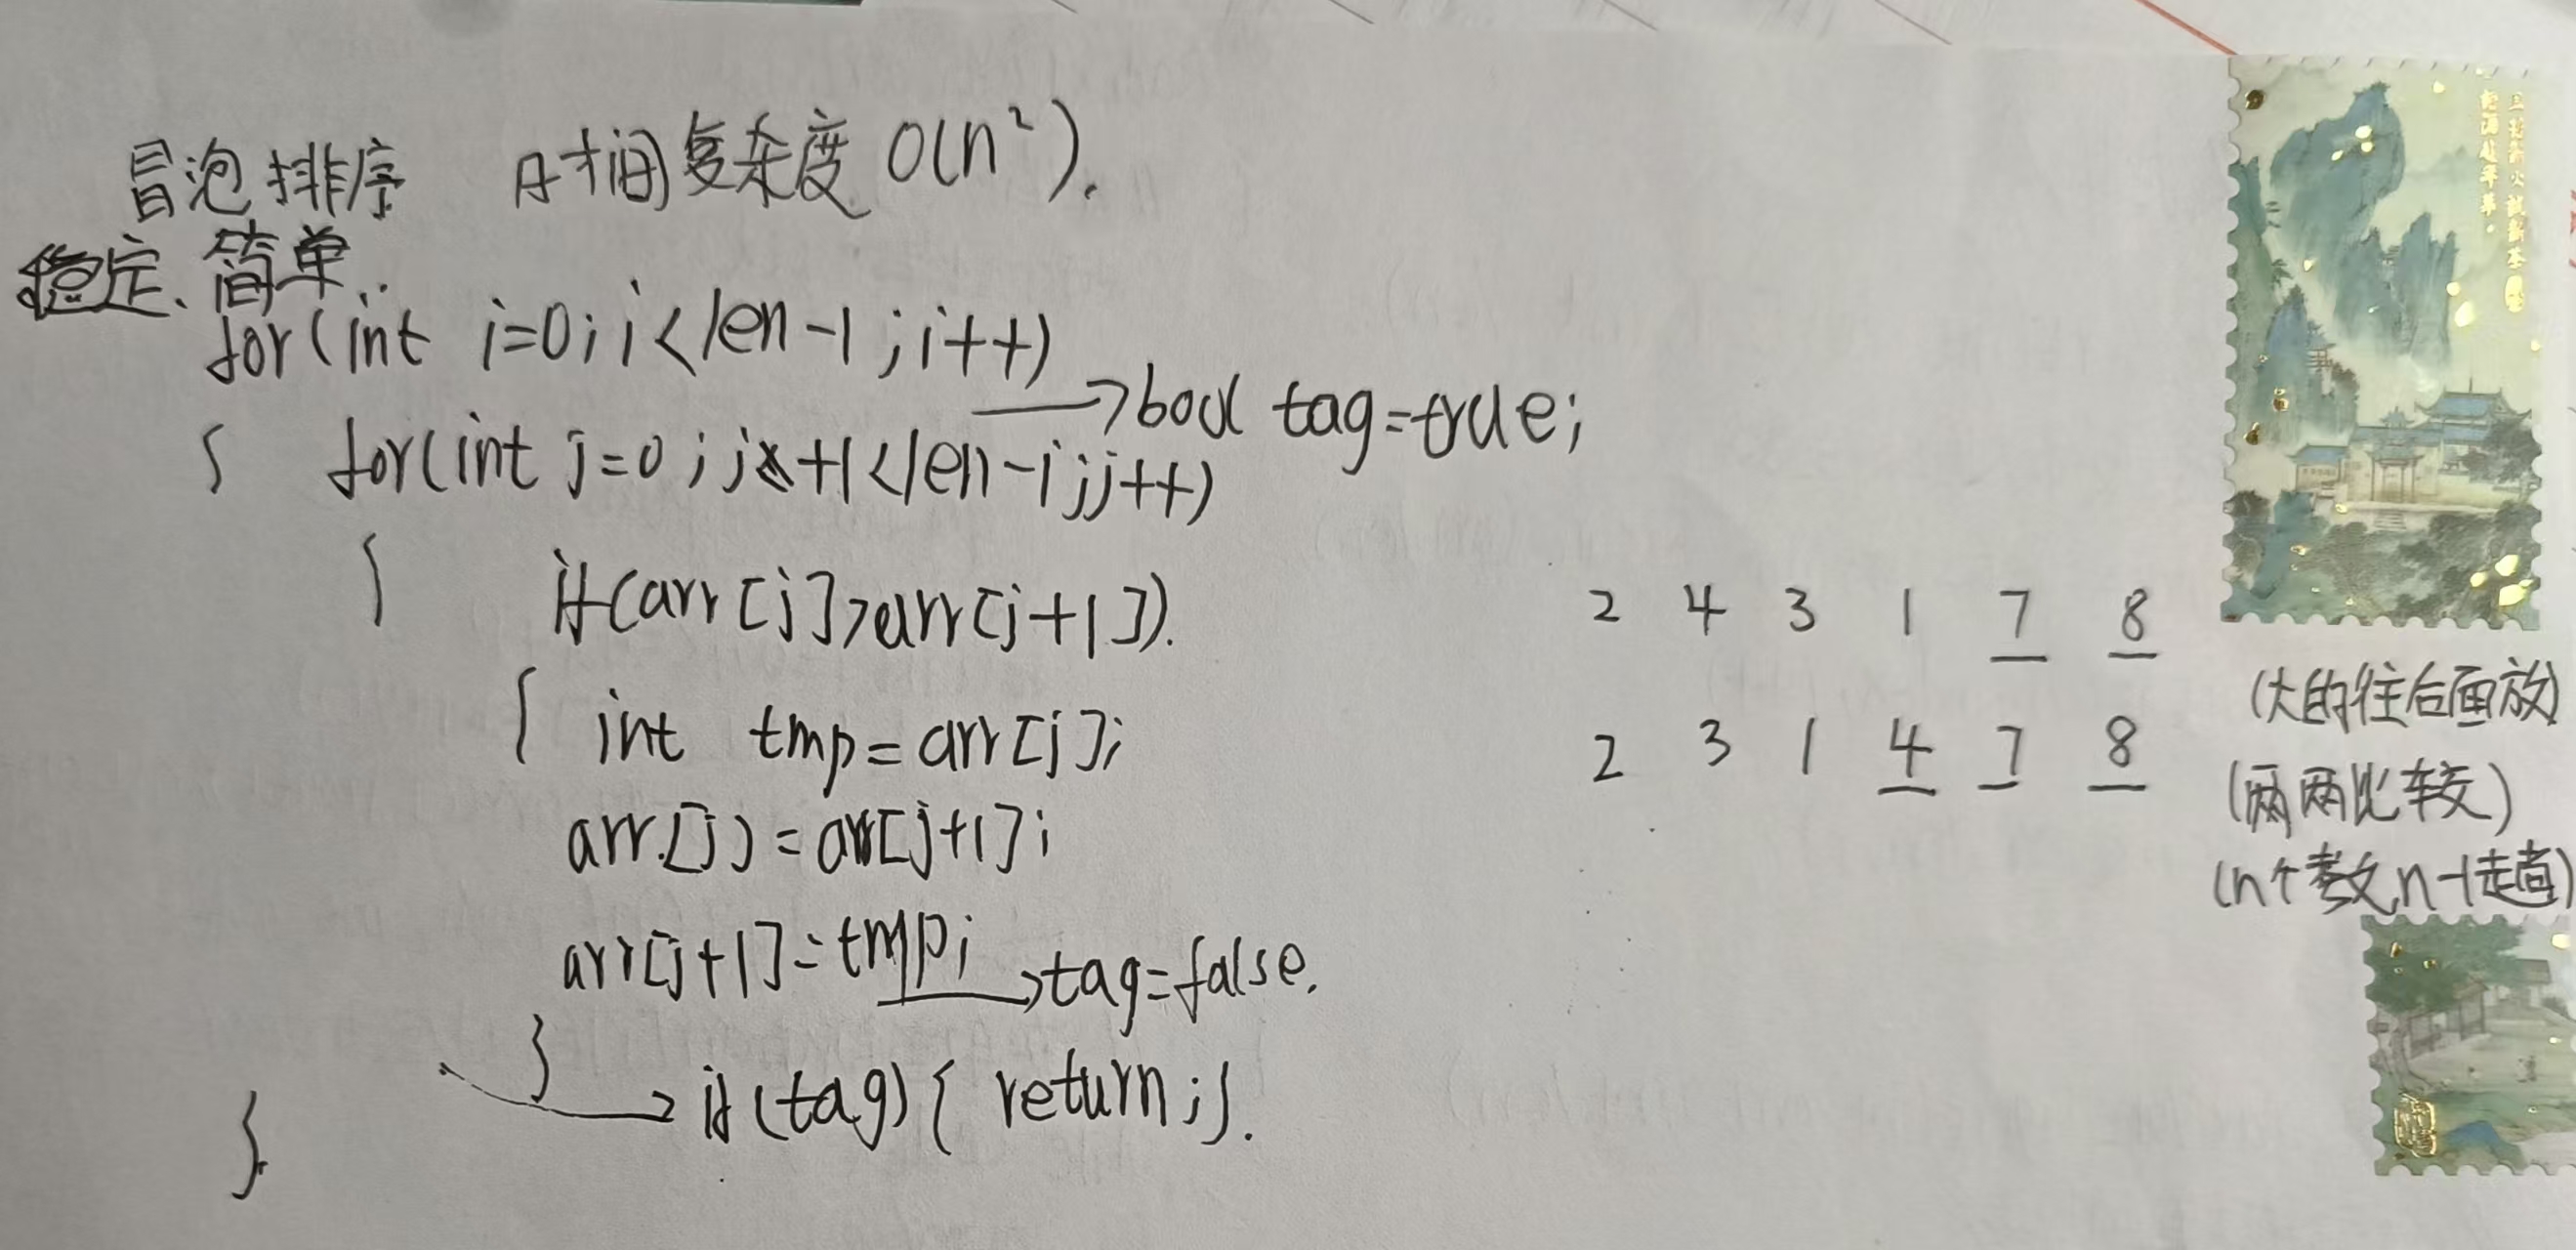 冒泡排序 时间复杂度 O(n²).
稳定、简单..
for(int i=0; i<len-1; i++)
→bool tag=true;
{ for(int j=0; j+1<len-i; j++)
{ if(arr[j]>arr[j+1]).
{ int tmp=arr[j];
arr[j]=arr[j+1];
arr[j+1]=tmp;
→tag=false.
}
→if(tag){ return;}.
}.
2 4 3 1 7 8
2 3 1 4 7 8
(大的往后面放)
(两两比较)
(n个数n-1趟)